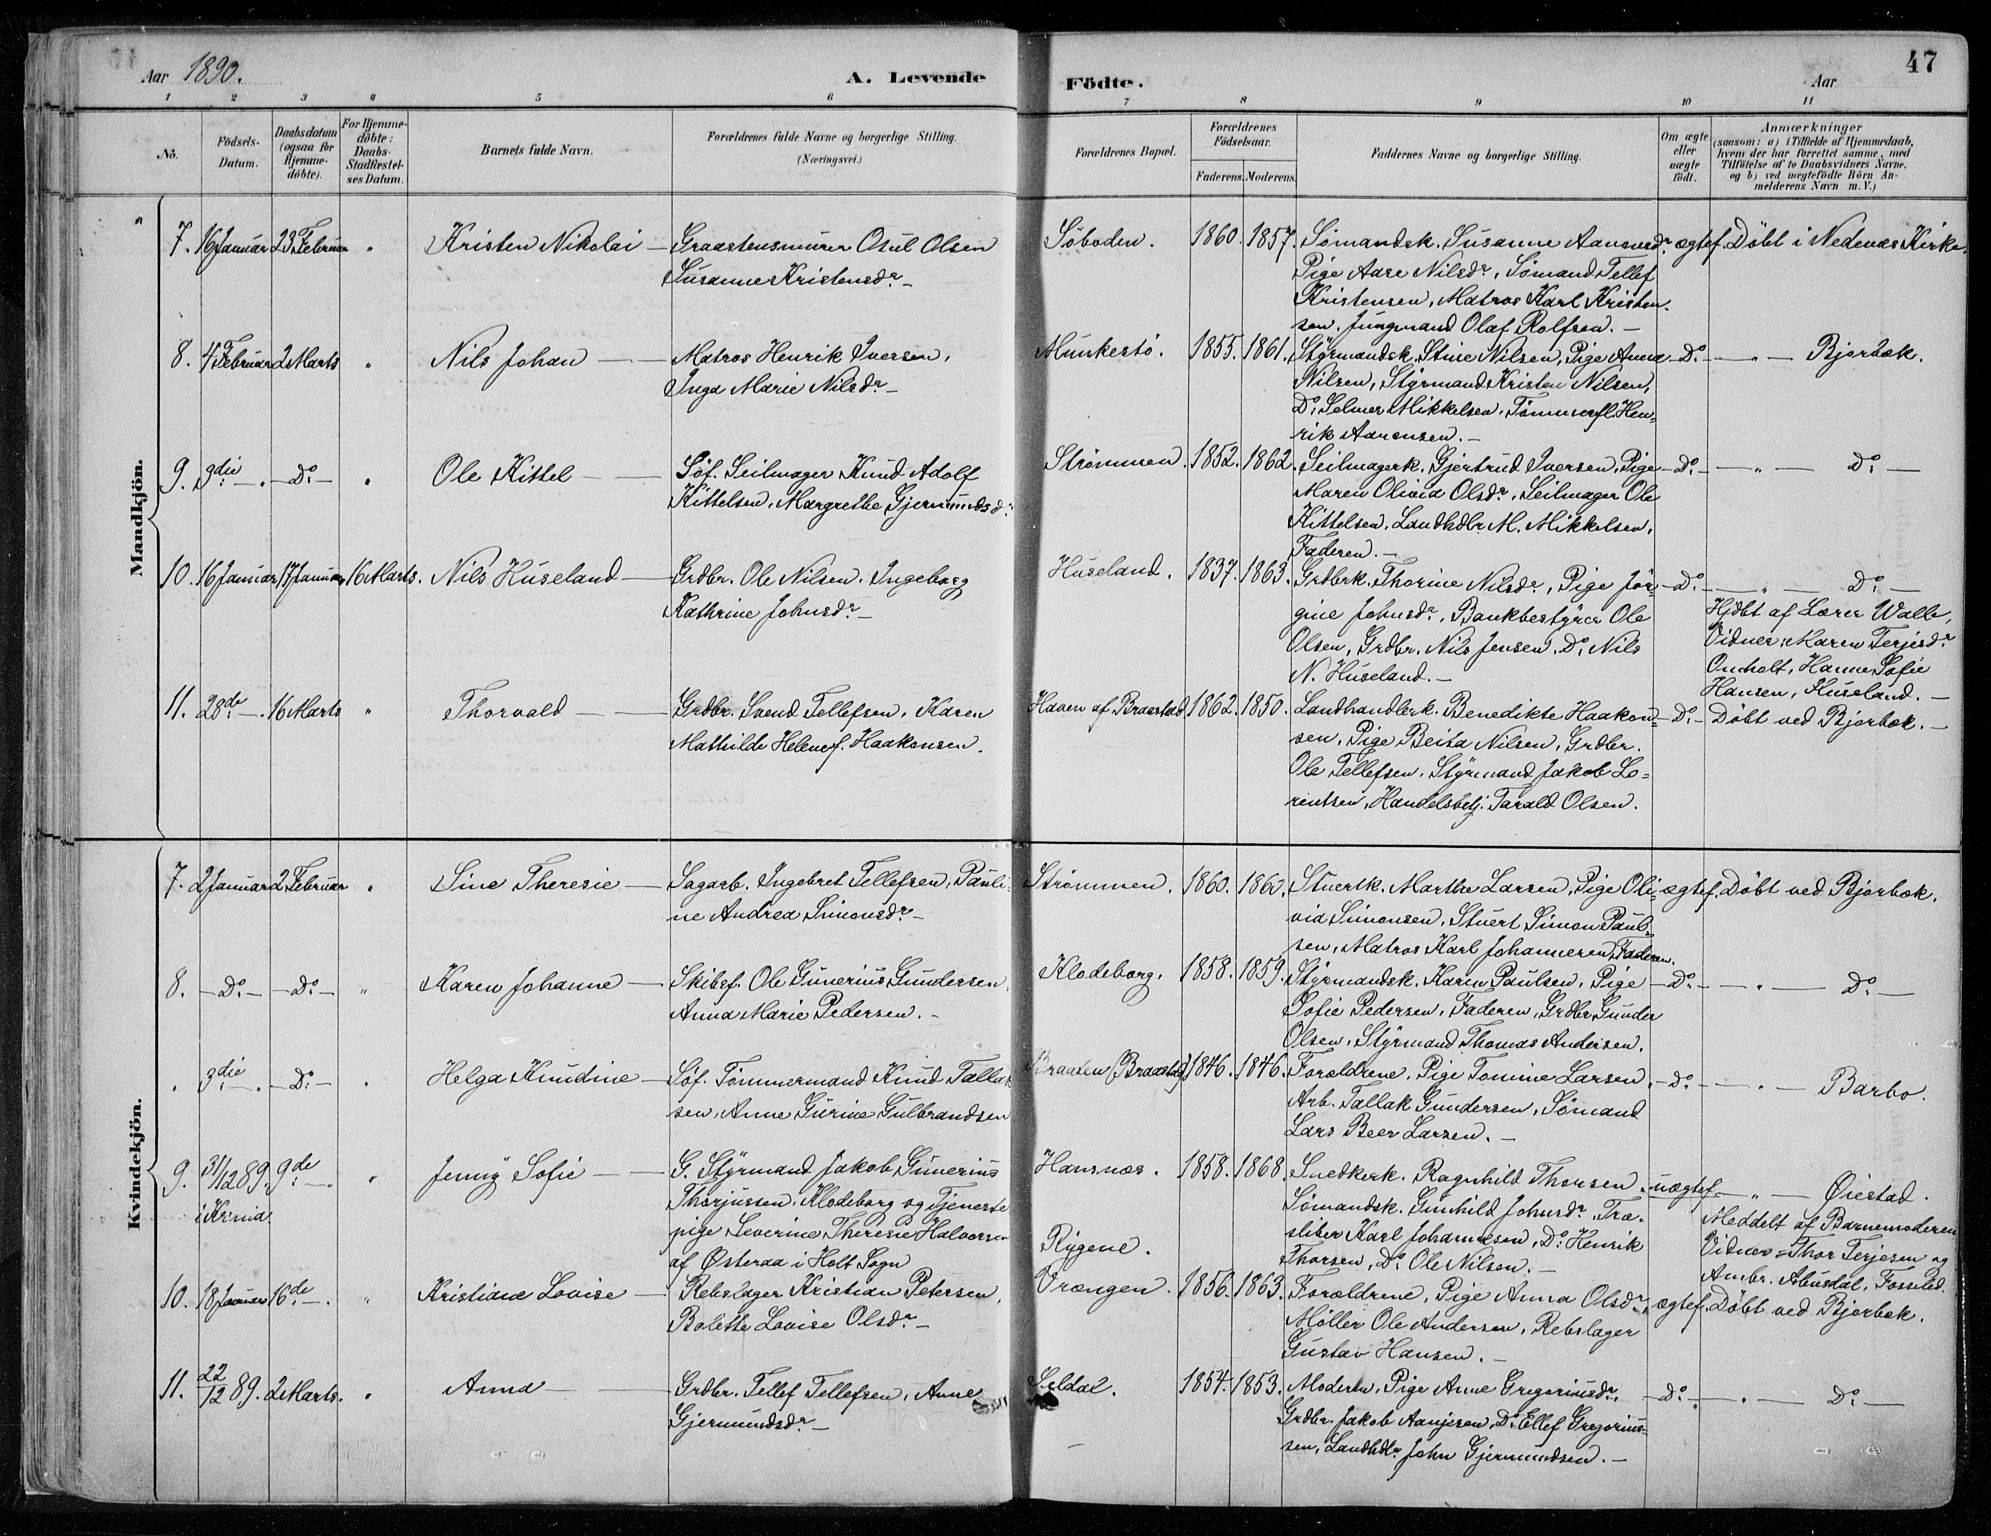 Aar 1890.
A. Levende
Födte.
Aar
47
1 2 3 4 5 6 7 8 9 10 11
Nô.
Födsels-
Datum.
Daabsdatum
(ogsaa for
Hjemme-
döbte).
For Hjemme-
döbte:
Daabs-
Stadfæstel-
ses Datum.
Barnets fulde Navn.
Forældrenes fulde Navne og borgerlige Stilling.
(Næringsvei.)
Forældrenes Bopæl.
Forældrenes
Födselsaar.
Faderens. Moderens.
Faddernes Navne og borgerlige Stilling.
Om ægte
eller
uægte
födt.
Anmærkninger
(saasom: a) i Tilfælde af Hjemmedaab,
hvem der har forrettet samme, med
Tilföielse af to Daabsvidners Navne,
og b) ved uægtefödte Börn An-
melderens Navn m. V.)
Mandkjön.
7. 16 Januar 23 Februar " Kristen Nikolai — Graastensmurer Osul Olsen
Susanne Kristensdr. —
Søboden. 1860. 1857. Sømandsk. Susanne Aanonsdr. ægtef. Døbt i Nedenæs Kirke.
Pige Aase Nilsdr., Sømand Tellef
Kristensen, Matros Karl Kristen-
sen, Jungmand Olaf Rolfsen. —
8. 4 Februar 2 Marts " Nils Johan — Matros Henrik Iversen,
Inga Marie Nilsdr. —
Munkestø. 1855. 1861. Styrmandsk. Stine Nilsen, Pige Anna — Do. — " — Bjorbæk.
Nilsen, Styrmand Kristen Nilsen,
Do. Selmer Mikkelsen, Tømmerfl. Hen-
rik Aanensen. —
9. 3die — Do. — " Ole Kittel — Søf. Seilmager Knud Adolf
Kittelsen, Margrethe Gjermundsdr.
Strømmen. 1852. 1862. Seilmagerk. Gjertrud Iversen, Pige — Do. — " — Do. —
Maren Olivia Olsdr., Seilmager Ole
Kittelsen, Landhdlr M. Mikkelsen,
Faderen. —
10. 16 Januar 17 Januar 16 Marts. Nils Huseland — Grdbr. Ole Nilsen, Ingeborg
Kathrine Johnsdr. —
Huseland. 1837. 1863. Grdbrk. Thorine Nilsdr., Pige Jør- — Do. — " — Do. —
gine Johnsdr., Bankbestyrer Ole
Olsen, Grdbr. Nils Jensen, Do. Nils
N. Huseland. —
Hjdbt af Lærer Walle,
Vidner: Maren Terjesdr.
Omholt, Hanne Sofie
Hansen, Huseland. —
11. 28de — 16 Marts " Thorvald — Grdbr. Svend Tellefsen, Karen
Mathilde Helene f. Haakonsen.
Haven af Braastad 1862. 1850. Landhandlerk. Benedikte Haakon- — Do. — Døbt ved Bjorbæk. —
sen, Pige Beita Nilsen, Grdbr.
Ole Tellefsen, Styrmand Jakob Lo-
rentsen, Handelsbetj. Tarald Olsen.
Kvindekjön.
7. 2 Januar 2 Februar " Sine Theresie — Sagarb. Ingebret Tellefsen, Pauli-
ne Andrea Simonsdr. —
Strømmen. 1860. 1860. Stuertk. Marthe Larsen, Pige Oli- ægtef. Døbt ved Bjorbæk.
via Simonsen, Stuert Simon Paul-
sen, Matros Karl Johannesen, Faderen.
8. — Do. — — Do. — " Karen Johanne — Skibsf. Ole Gunerius Gundersen,
Anna Marie Pedersen. —
Klodeborg. 1858. 1859. Styrmandsk. Karen Paulsen, Pige — Do. — " — Do. —
Sofie Pedersen, Faderen, Grdbr. Gunder
Olsen, Styrmand Thomas Andersen.
" 3die — Do. — " Helga Knudine — Søf. Tømmermand Knud Tallak-
sen, Anne Gurine Gulbrandsen
Braaten (Braastad) 1846. 1846. Forældrene, Pige Tomine Larsen, — Do. — " — Barbo.
Arb. Tallak Gundersen, Sømand
Lars Beer Larsen. —
9. 31/12 89. 9de — " Jenny Sofie — G. Styrmand Jakob Gunerius
i Krmd.
Thorjussen, Klodeborg og Tjeneste
pige Severine Theresie Halvorsen
af Østeraa i Holt Sogn
Hansnæs. 1858. 1868. Snedkerk. Ragnhild Thorsen, uægtef. — " — Øiestad.
Rygene.
Sømandsk. Gunhild Johnsdr., Træ-
sliber Karl Johannesen, Do. Henrik
Thorsen, Do. Ole Nilsen. —
Meddelt af Barnemoderen
Vidner = Thor Terjesen og
Ambr. Abusdal, Fosselid.
10. 18 Januar 16de — " Kristiane Lovise — Rebslager Kristian Petersen,
Bolette Lovise Olsdr. —
Vrængen. 1856. 1863. Forældrene, Pige Anna Olsdr., ægtef. Døbt ved Bjorbæk.
Møller Ole Andersen, Rebslager
Gustav Hansen. —
11. 22/12 89. 2 Marts. " Anna — Grdbr. Tellef Tellefsen, Anne
Gjermundsdr. —
Seldal. 1854. 1853. Moderen, Pige Anne Gregoriusdr., — Do. — " — Do. —
Grdbr. Jakob Aanjesen, Do. Ellef Gregorius-
sen, Landhdlr. John Gjermundsen. —